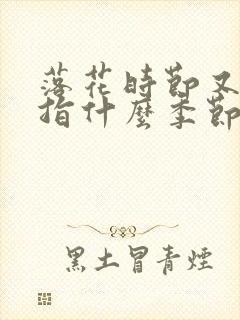 落花時節又
指什麼季節
黑土冒青煙